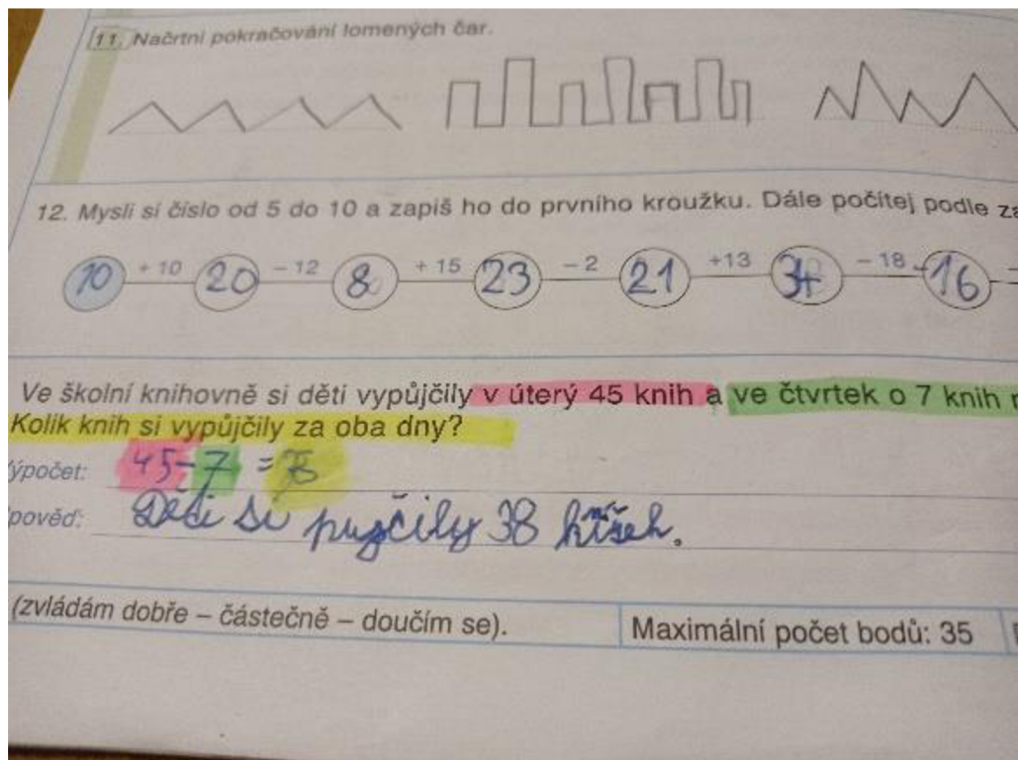 11. Načrtni pokračování lomených čar.
12. Mysli si číslo od 5 do 10 a zapiš ho do prvního kroužku. Dále počítej podle za
10 + 10 20 - 12 8 + 15 23 - 2 21 +13 34 - 18 16
Ve školní knihovně si děti vypůjčily v úterý 45 knih a ve čtvrtek o 7 knih
Kolik knih si vypůjčily za oba dny?
ýpočet: 45-7 =
pověď: Děti si 38
(zvládám dobře – částečně – doučím se).
Maximální počet bodů: 35